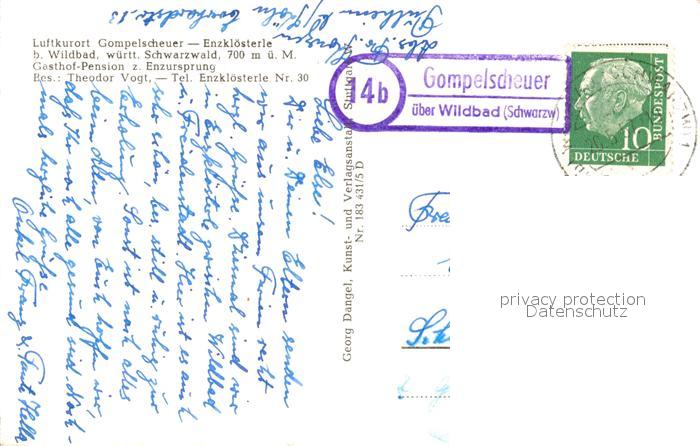 Luftkurort Gompelscheuer — Enzklösterle
b. Wildbad, württ. Schwarzwald, 700 m ü. M.
Gasthof-Pension z. Enzursprung
Bes.: Theodor Vogt, — Tel. Enzklösterle Nr. 30
14b
Gompelscheuer
über Wildbad (Schwarzw)
10
DEUTSCHE
BUNDESPOST
Georg Dangel, Kunst- und Verlagsanstalt, Stuttgart-W
Nr. 183 431/5 D
Liebe Else!
Dir u. Deinen Eltern senden
wir aus unsern Ferien recht
herzl. Grüße. Diesmal sind wir
in Enzklösterle zwischen Wildbad
u. Freudenstadt. Hier ist es auch
sehr schön, bes. still u. ruhig zur
Erholung. Sonst ist noch alles
beim Alten, von Euch hoffen wir,
daß Ihr noch alle gesund seid. Noch-
mals herzliche Grüße
Onkel Franz u. Tante Hella
Abs. Fr.
Pulheim b/Köln
Fre
Sch
privacy protection
Datenschutz